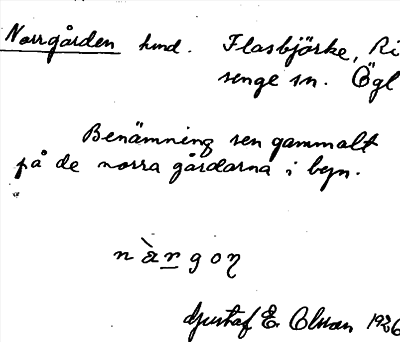 Norrgården hmd. Flasbjörke, Ri
senge sn. Ögl
Benämning sen gammalt
på de norra gårdarna i byn.
Gustaf E. Olsson 1926